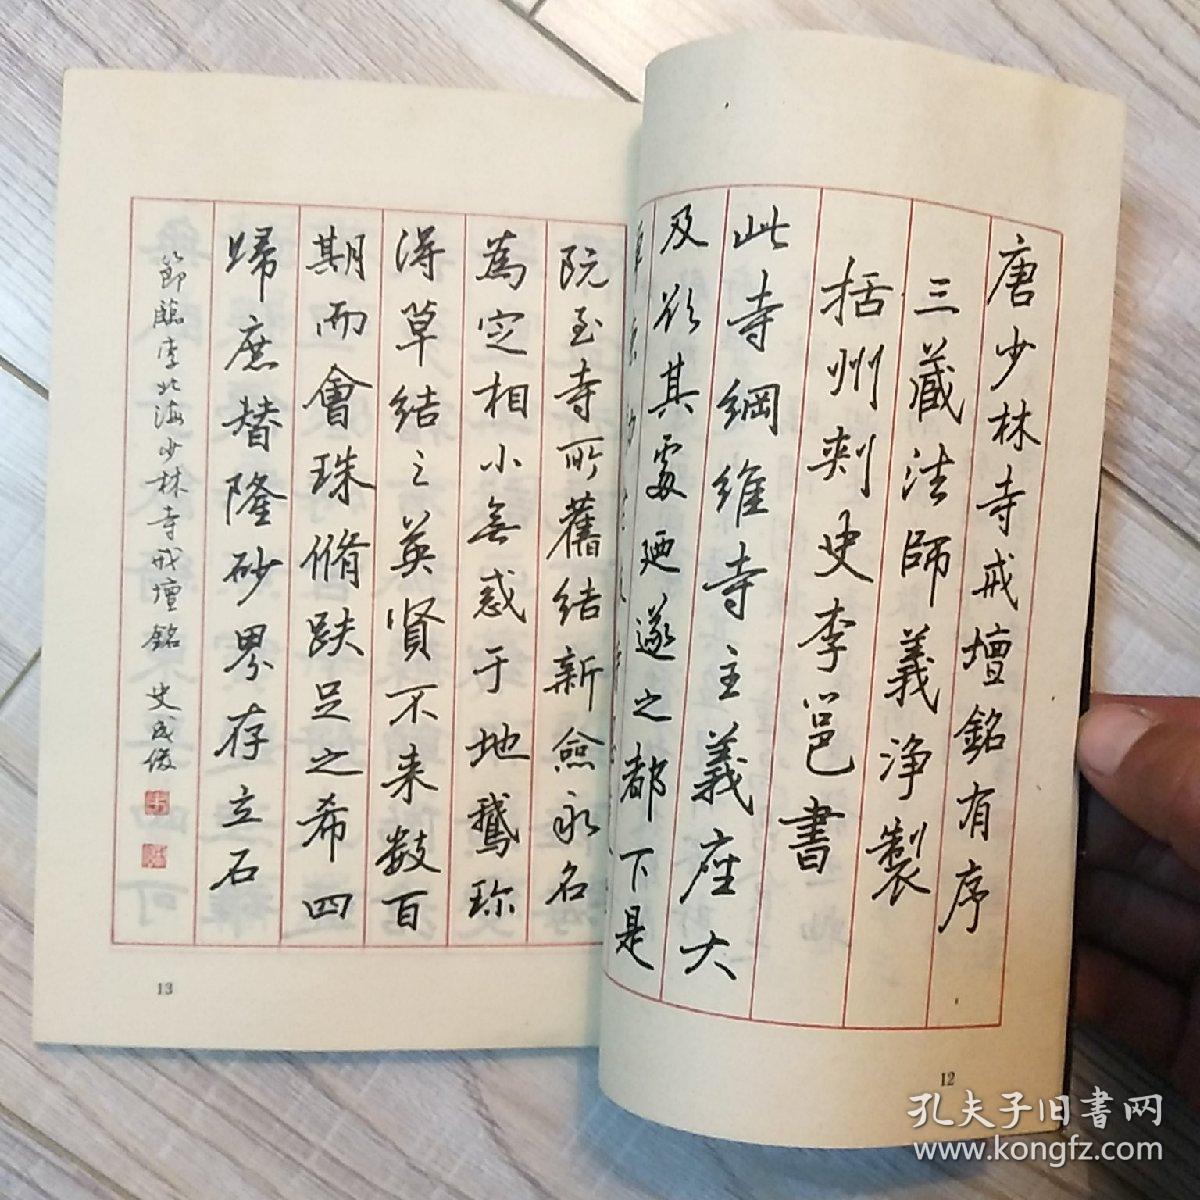 唐少林寺戒壇銘有序
三藏法師義净製
括州刺史李邕書
此寺綱維寺主義座大
及欲其處廼遂之都下是
阮至寺所舊結新僉永名
為定相小無惑于地鵝珎
得草結之英賢不来数百
期而會珠脩趺足之希四
歸庶替隆砂界存立石
節臨李北海少林寺戒壇銘 史成俊
13
12
孔夫子旧书网
www.kongfz.com